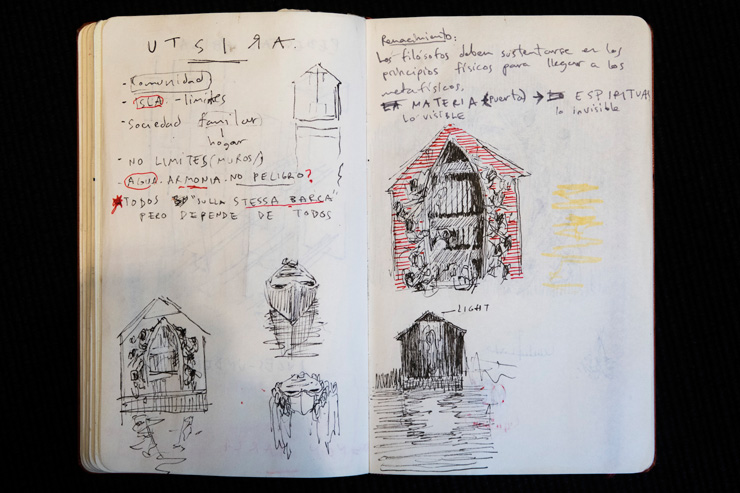 UTSIRA.
- Komunidad
- ISLA - limites
- Sociedad familiar
hogar
- NO LIMITES (MUROS)
- AGUA. ARMONIA. NO PELIGRO?
TODOS "SULLA STESSA BARCA"
PERO DEPENDE DE TODOS
Renacimiento:
Los filósofos deben sustentarse en los
principios físicos para llegar a los
metafísicos.
LA MATERIA (puerta) → LO ESPIRITUAL
lo visible lo invisible
LIGHT